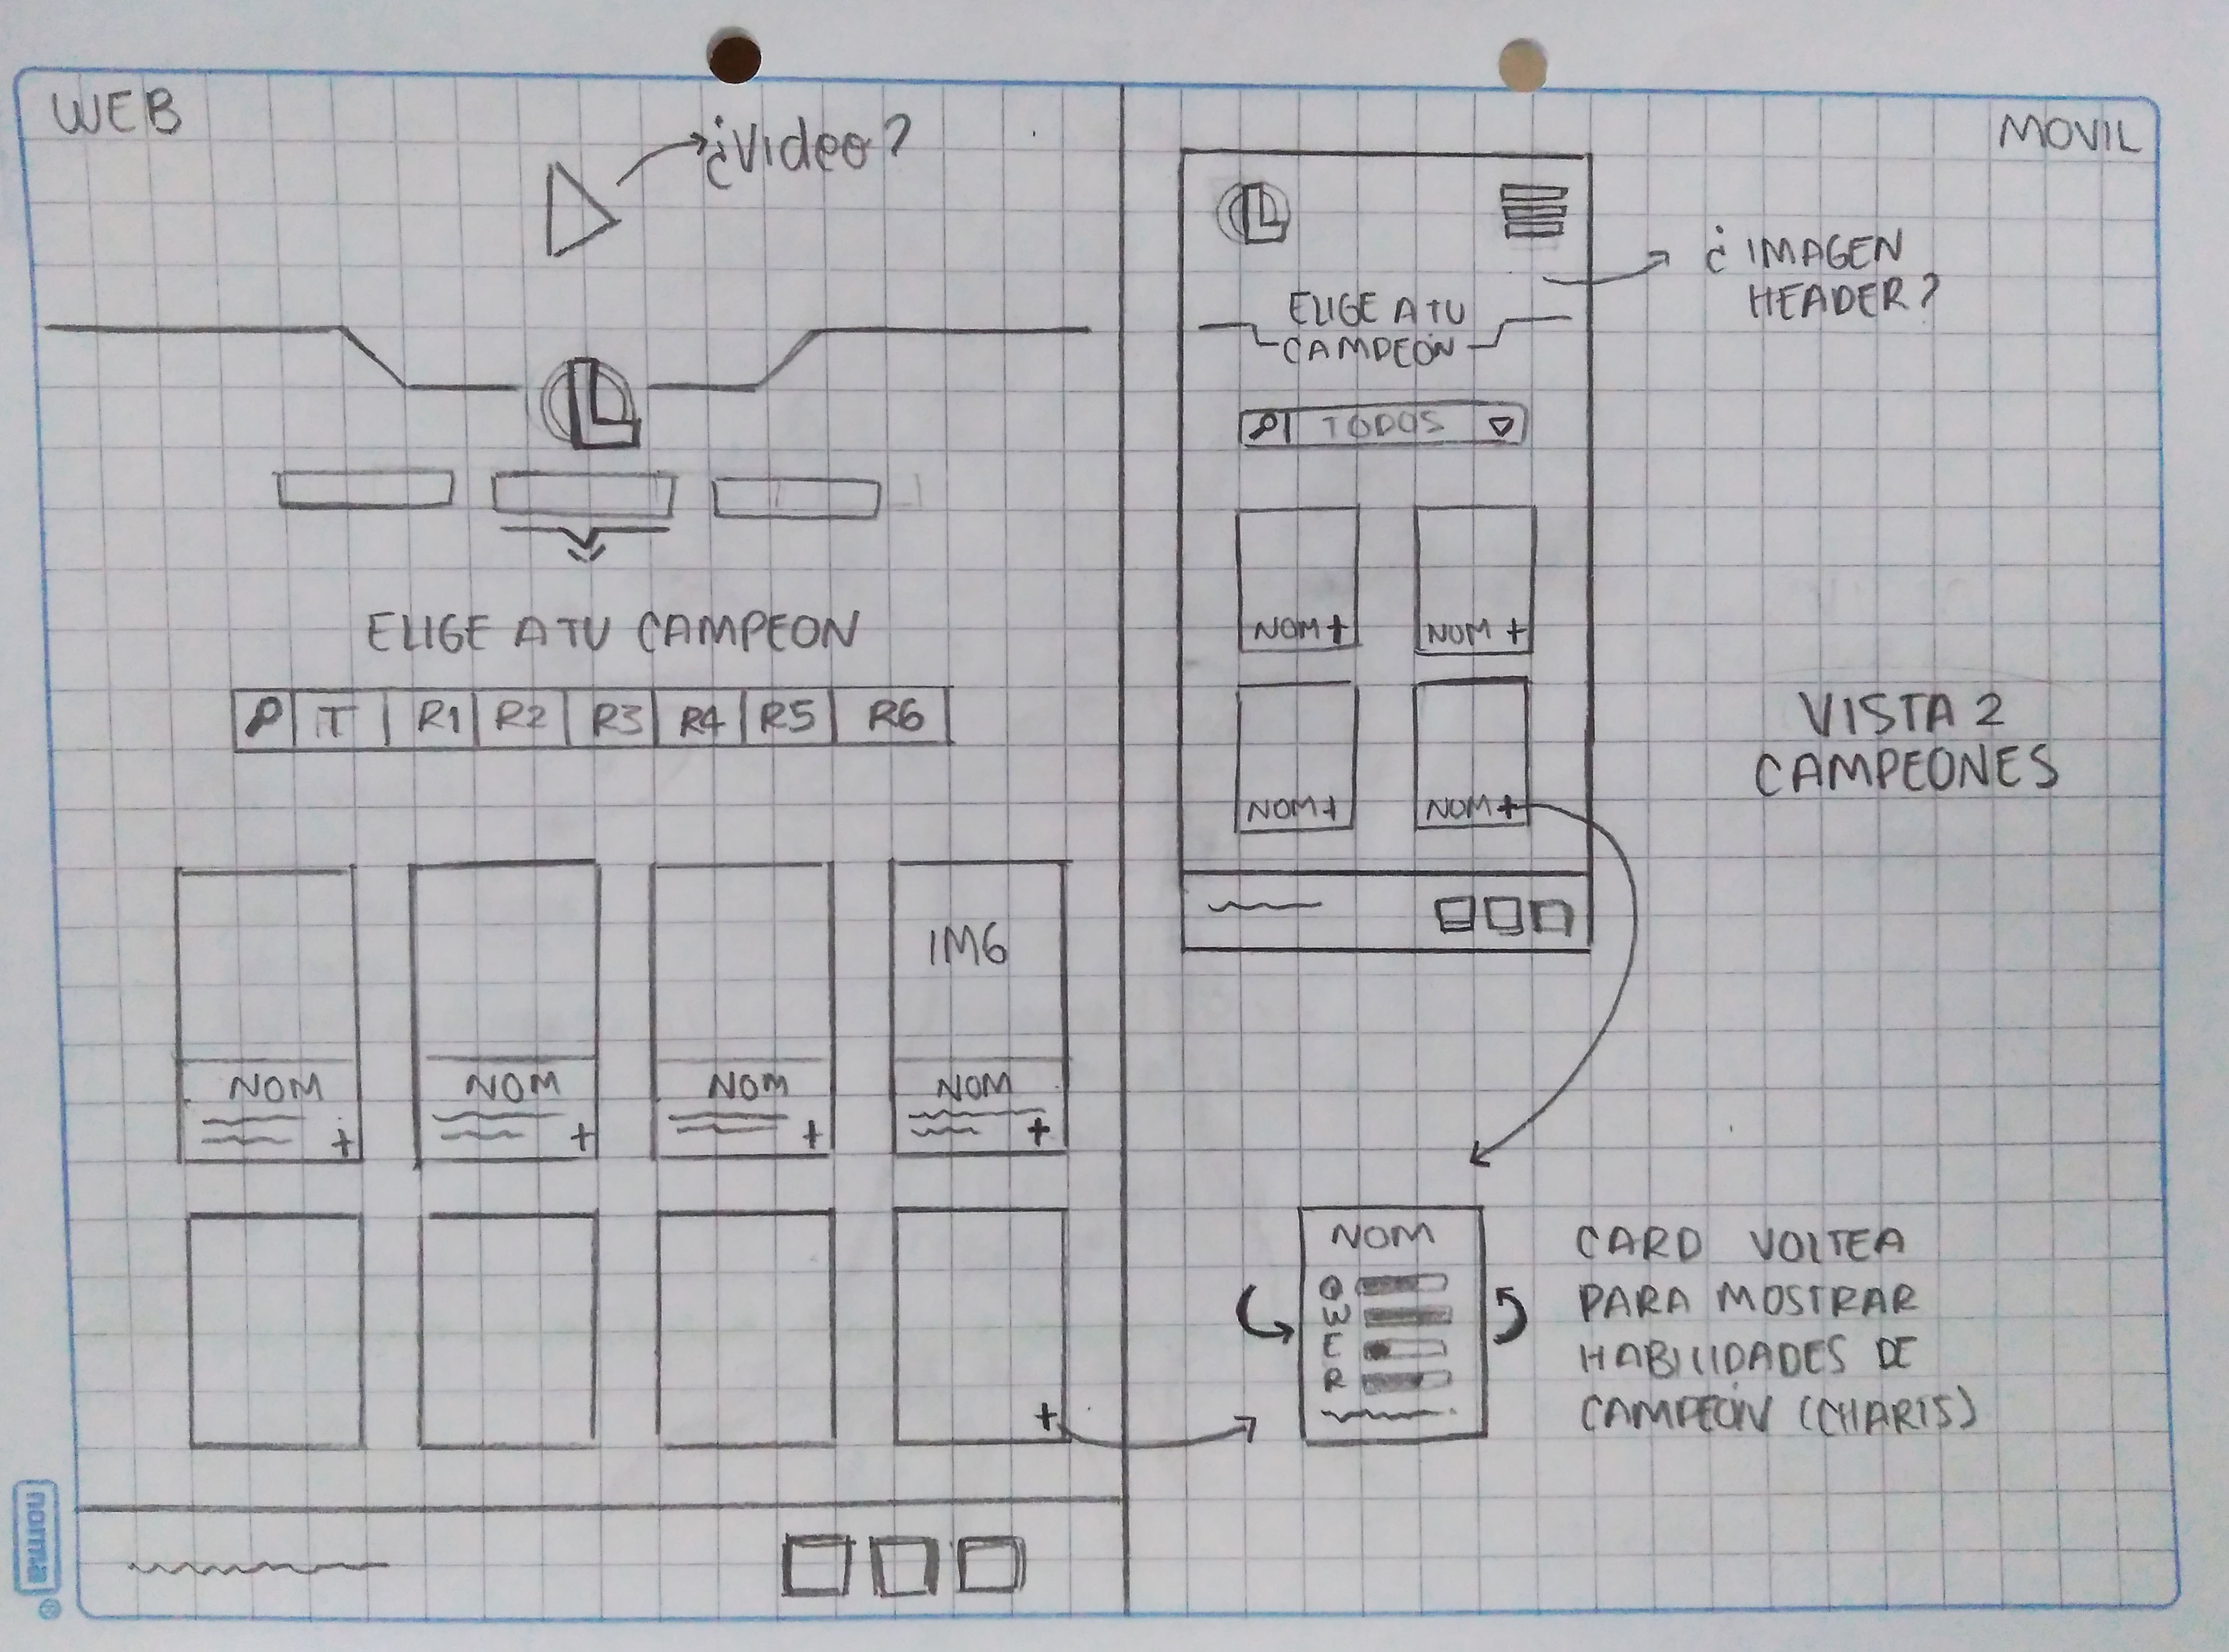 WEB
¿Video?
ELIGE A TU CAMPEON
T R1 R2 R3 R4 R5 R6
IMG
NOM NOM NOM NOM
+ + + +
+
MOVIL
L
¿IMAGEN
HEADER?
ELIGE A TU
CAMPEÓN
TODOS
NOM + NOM +
NOM + NOM +
VISTA 2
CAMPEONES
NOM
Q
W
E
R
CARD VOLTEA
PARA MOSTRAR
HABILIDADES DE
CAMPEÓN (CHARTS)
norma